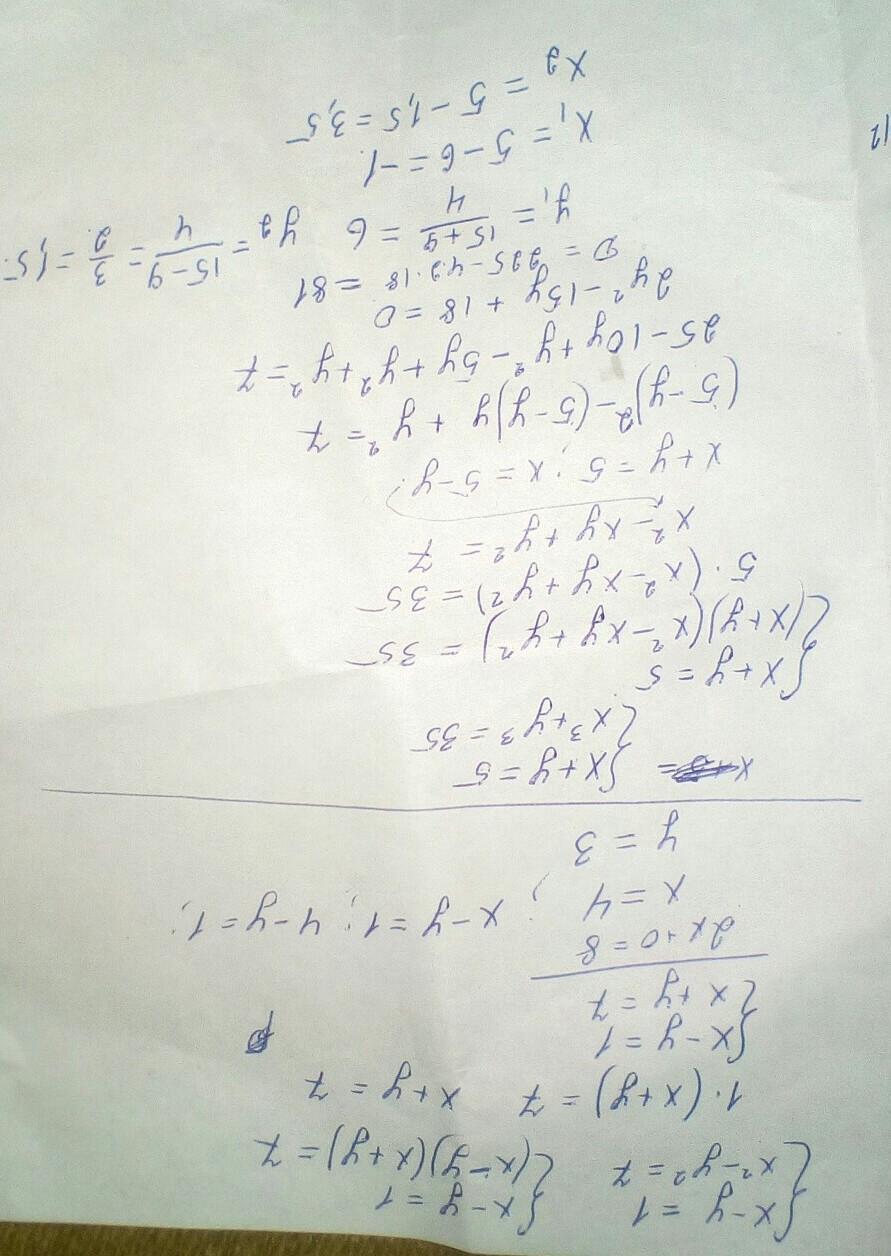 {x-y=1 {x-y=1
{x²-y²=7 {(x-y)(x+y)=7
1·(x+y)=7 x+y=7
{x-y=1
{x+y=7
2x+0=8
x=4; x-y=1; 4-y=1;
y=3
{x+y=5
{x³+y³=35
{x+y=5
{(x+y)(x²-xy+y²)=35
5·(x²-xy+y²)=35
x²-xy+y²=7
x+y=5; x=5-y;
(5-y)²-(5-y)y+y²=7
25-10y+y²-5y+y²+y²=7
2y²-15y+18=0
D=225-4·2·18=81
y₁=15+9/4=6 y₂=15-9/4=3/2=1,5
x₁=5-6=-1
x₂=5-1,5=3,5
12